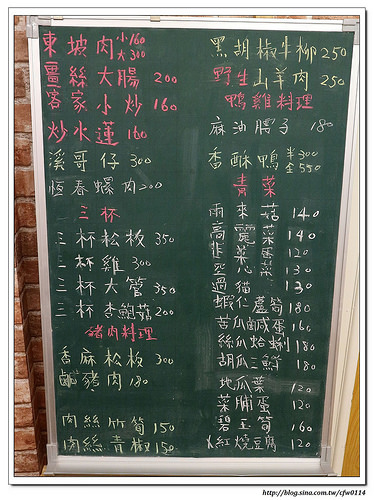 東坡肉 小160 大300
薑絲大腸 200
客家小炒 160
炒水蓮 160
溪哥仔 300
恆春螺肉 200
三杯
三杯松板 350
三杯雞 300
三杯大管 350
三杯杏鮑菇 200
豬肉料理
香麻松板 300
鹹豬肉 180
肉絲竹筍 150
肉絲青椒 150
黑胡椒牛柳 250
野生山羊肉 250
鴨雞料理
麻油腰子 180
香酥鴨 半300 全550
青菜
雨來菇 140
高麗菜 140
韭菜蛋 120
空心菜 130
過貓 130
蝦仁蘆筍 180
苦瓜鹹蛋 160
絲瓜蛤蜊 180
胡瓜三鮮 180
地瓜葉 120
菜脯蛋 120
碧玉筍 160
紅燒豆腐 120
http://blog.sina.com.tw/cfw0114